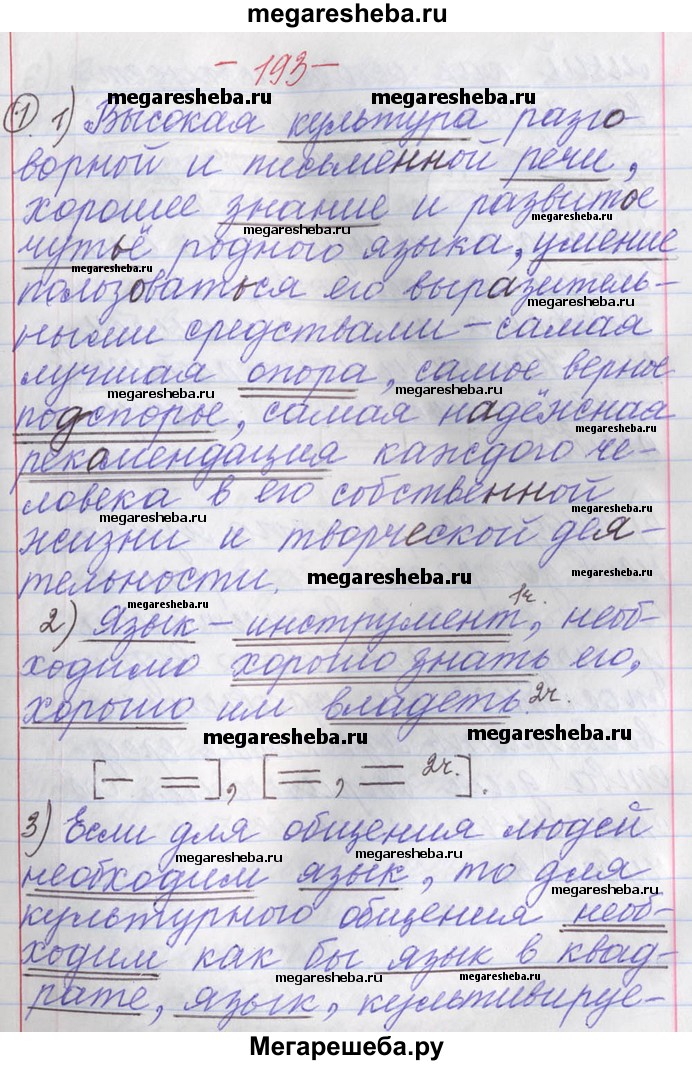 megaresheba.ru
- 193 -
megaresheba.ru megaresheba.ru
1. 1) Высокая культура разго-
ворной и письменной речи,
хорошее знание и развитое
megaresheba.ru
чутьё родного языка, умение
megaresheba.ru
пользоваться его выразитель-
megaresheba.ru
ными средствами – самая
лучшая опора, самое верное
megaresheba.ru
подспорье, самая надёжная
megaresheba.ru
рекомендация каждого че-
ловека в его собственной
megaresheba.ru
жизни и творческой дея-
megaresheba.ru
тельности.
2) Язык – инструмент 1г., необ-
megaresheba.ru
ходимо хорошо знать его,
хорошо им владеть 2г.
megaresheba.ru megaresheba.ru
[– =], [=, = 2г.].
3) Если для общения людей
megaresheba.ru
необходим язык, то для
megaresheba.ru
культурного общения необ-
ходим как бы язык в квад-
megaresheba.ru megaresheba.ru
рате, язык, культивируе-
Мегарешеба.ру